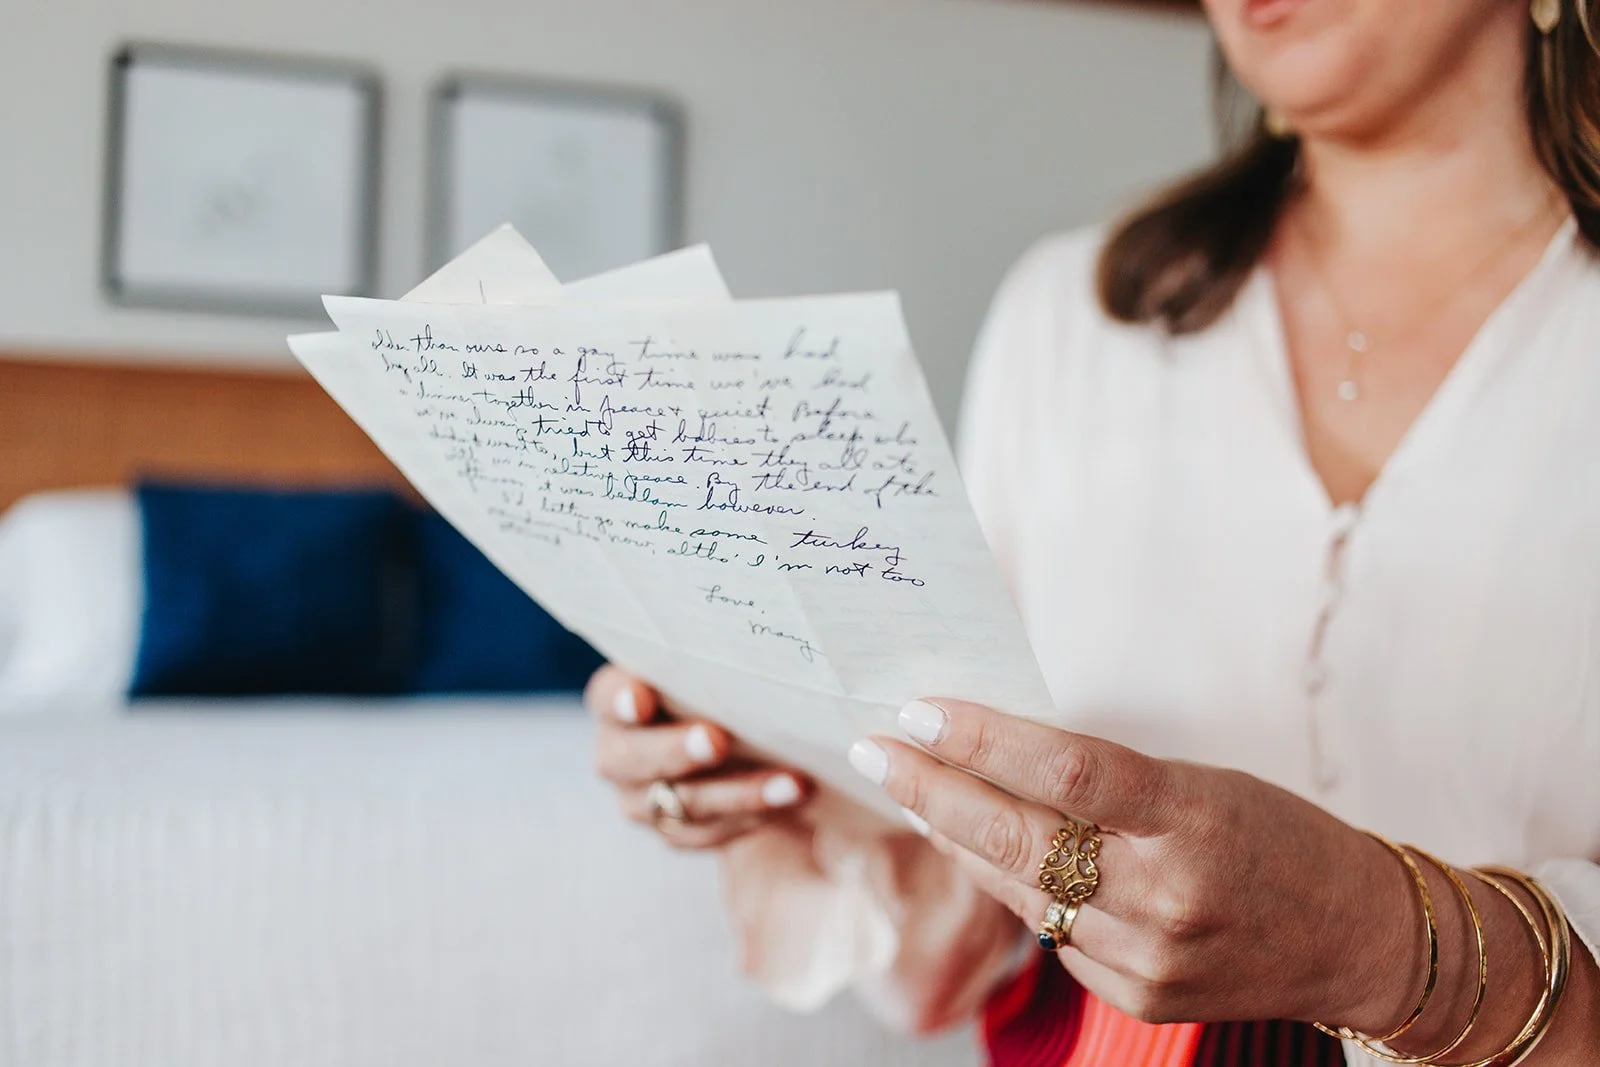 older than ours so a gay time was had
by all. It was the first time we've had
a dinner together in peace & quiet. Before
we've always tried to get babies to sleep who
didn't want to, but this time they all ate
with us in relative peace. By the end of the
afternoon it was bedlam however.
I'd better go make some turkey
sandwiches now, altho' I'm not too
starved
Love,
Mary